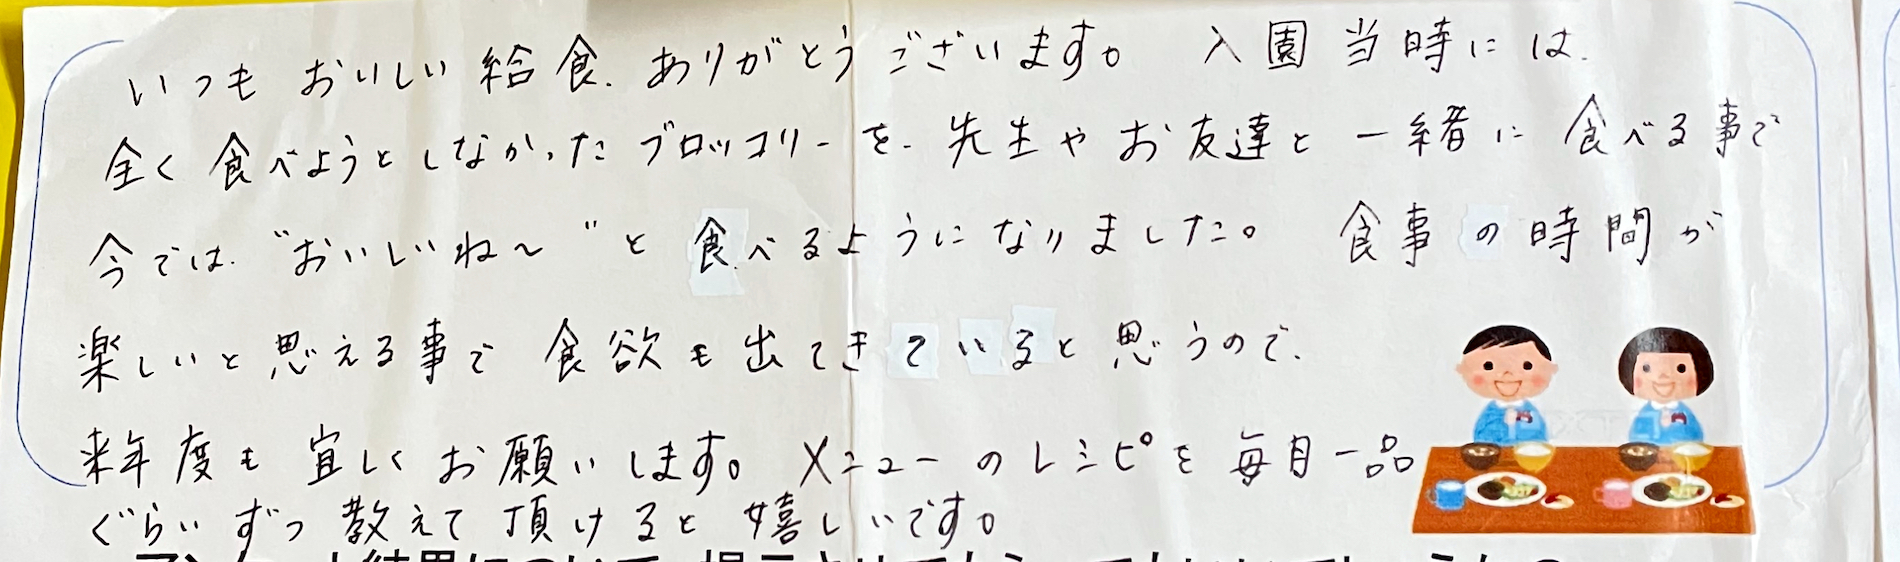 いつもおいしい給食、ありがとうございます。入園当時には、
全く食べようとしなかったブロッコリーを、先生やお友達と一緒に食べる事で
今では、“おいしいね～”と食べるようになりました。食事の時間が
楽しいと思える事で食欲も出てきていると思うので、
来年度も宜しくお願いします。メニューのレシピを毎月一品
ぐらいずつ教えて頂けると嬉しいです。